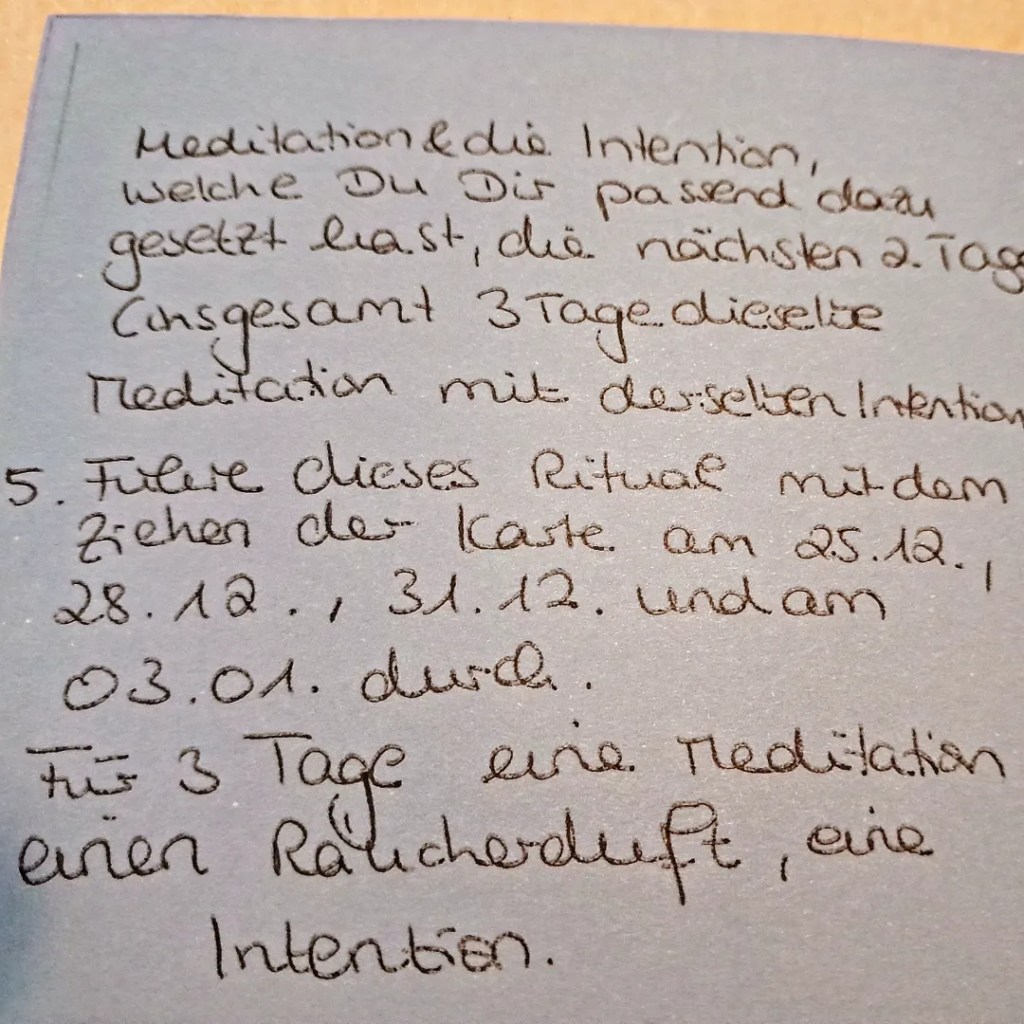 Meditation & die Intention,
welche Du Dir passend dazu
gesetzt hast, die nächsten 2. Tage
(insgesamt 3 Tage dieselbe
Meditation mit derselben Intention
5. Führe dieses Ritual mit dem
Ziehen der Karte am 25.12.,
28.12., 31.12. und am
03.01. durch.
Für 3 Tage eine Meditation
einen Räucherduft, eine
Intention.